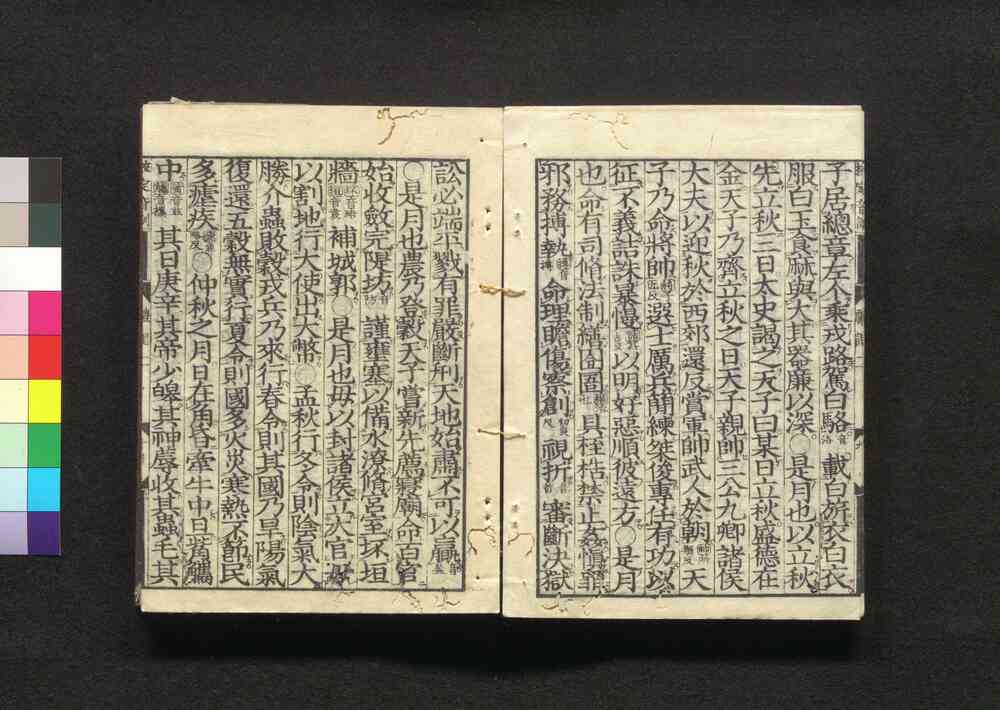 子居總章左个乘戎路駕白駱音洛載白旂衣白衣
服白玉食麻與犬其器廉以深〇是月也以立秋
先立秋三日大史謁之天子曰某日立秋盛德在
金天子乃齊立秋之日天子親帥三公九卿諸侯
大夫以迎秋於西郊還反賞軍帥武人於朝天
子乃命將帥選士厲兵簡練桀俊專任有功以
征不義詰誅暴慢以明好惡順彼遠方〇是月
也命有司脩法制繕囹圄具桎梏禁止姦愼罪
邪務搏執命理瞻傷察創視折審斷決獄
訟必端平戮有罪嚴斷刑天地始肅不可以贏
〇是月也農乃登穀天子嘗新先薦寢廟命百官
始收斂完隄坊謹壅塞以備水潦脩宮室坏垣
牆補城郭〇是月也毋以封諸侯立大官毋
以割地行大使出大幣〇孟秋行冬令則陰氣大
勝介蟲敗穀戎兵乃來行春令則其國乃旱陽氣
復還五穀無實行夏令則國多火災寒熱不節民
多瘧疾〇仲秋之月日在角昏牽牛中旦觜觿
中其日庚辛其帝少皥其神蓐收其蟲毛其